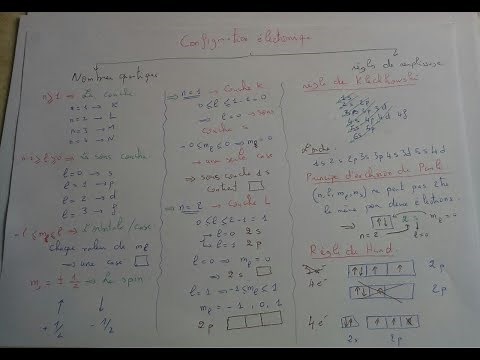 Configuration électronique
Nombres quantiques
n ≥ 1 ⇒ La couche
n = 1 → K
n = 2 → L
n = 3 → M
n = 4 → N
⇒ La sous couche
l = 0 → s
l = 1 → p
l = 2 → d
l = 3 → f
-l ≤ ml ≤ l ⇒ L'orbitale/case
Chaque valeur de ml
→ une case
ms = ± 1/2 ⇒ Le spin
↑ ↓
+1/2 -1/2
⇒ n = 1 → Couche K
0 ≤ l ≤ 1-1 = 0
→ l = 0 → sous
couche s
-0 ≤ ml ≤ 0 ⇒ ml = 0
→ une seule case
⇒ sous couche 1s
Contient
⇒ Couche L
0 ≤ l ≤ 2-1 = 1
→ l = 0 2s
→ l = 1 2p
l = 0 ⇒ ml = 0
⇒ 2s
l = 1 ⇒ -1 ≤ ml ≤ 1
ml = -1, 0, 1
2p
règle de remplissage
règle de Klechkowski
1s
2s 2p
3s 3p 3d
4s 4p 4d 4f
5s 5p
6s
L'ordre
1s 2s 2p 3s 3p 4s 3d 5s 4d
Principe d'exclusion de Pauli
(n, l, ml, ms) ne peut pas être
le même pour deux électrons
⇒ ↑↓ 2s ml = 0
n = 2 l = 0
Règle de Hund
↑↓ ↑ ↑ 2p
4e⁻
↑↓ ↑↓ 2p
4e⁻ ↑↓ ↑ ↑
2s 2p